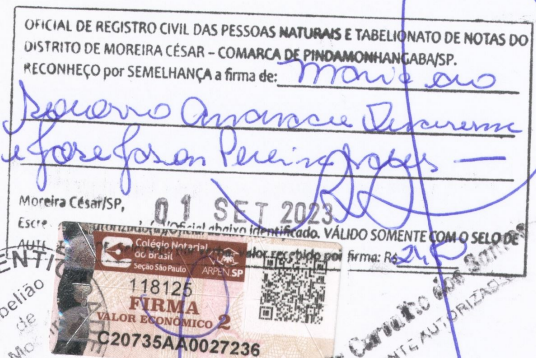 OFICIAL DE REGISTRO CIVIL DAS PESSOAS NATURAIS E TABELIONATO DE NOTAS DO
DISTRITO DE MOREIRA CÉSAR – COMARCA DE PINDAMONHANGABA/SP.
RECONHEÇO por SEMELHANÇA a firma de: Maria do
Socorro
e Jose Pereira
Moreira César/SP, 01 SET 2023
Escre
/Oficial abaixo identificado. VÁLIDO SOMENTE COM O SELO DE
AUTE valor recebido por firma: R$
Colégio Notarial
do Brasil
Seção São Paulo
ARPEN SP
118125
FIRMA
VALOR ECONÔMICO 2
C20735AA0027236